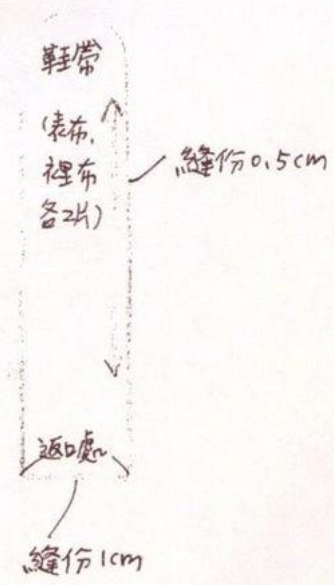 鞋帶
(表布,
裡布
各2片)
縫份0.5cm
返口處
縫份1cm